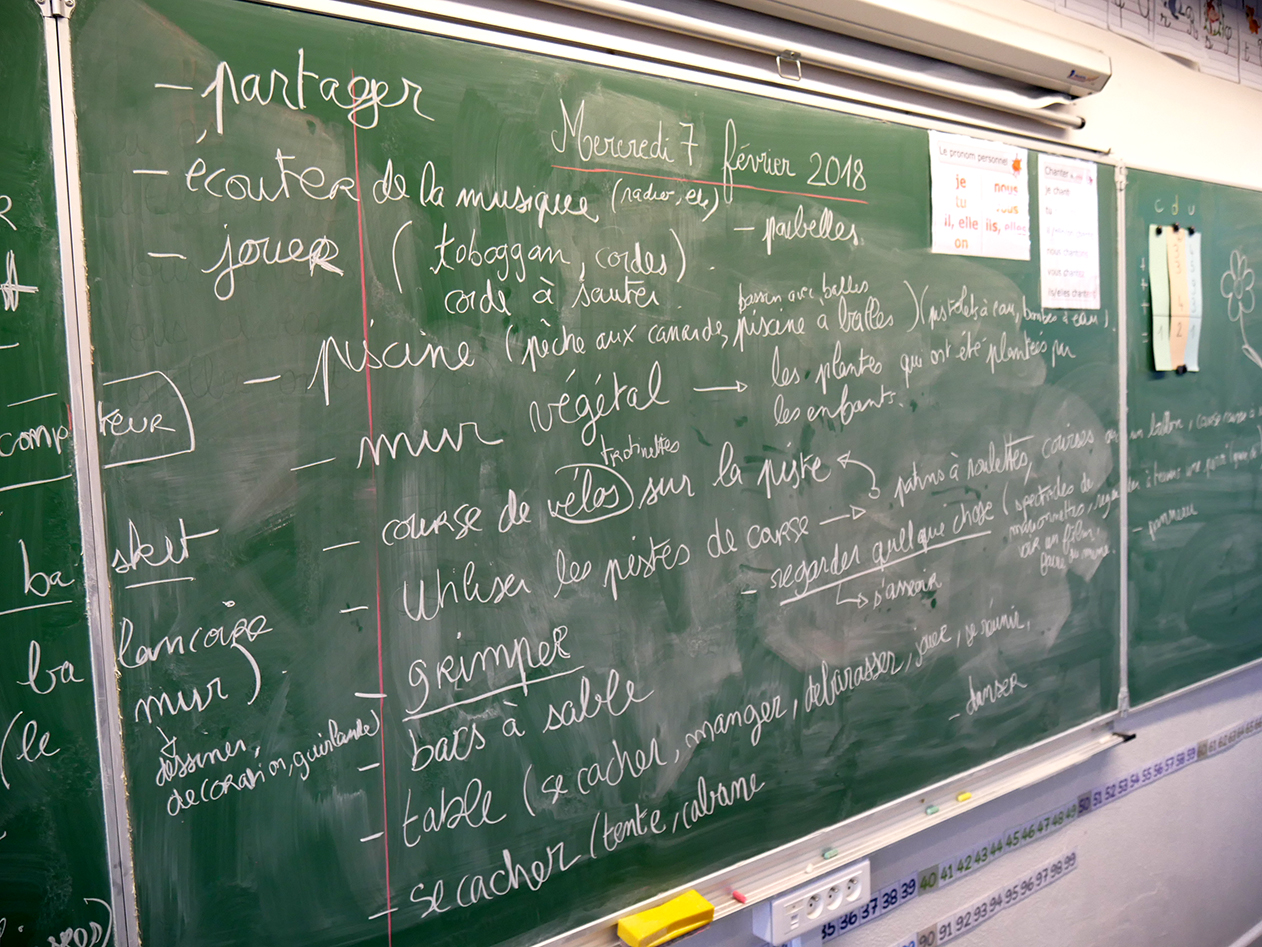 - partager
Mercredi 7 février 2018
- écouter de la musique (radio, etc)
- poubelles
- jouer ( toboggan, cordes)
corde à sauter
bassin avec balles
- piscine (pêche aux canards, piscine à balles) (pistolets à eau, bombes à eau)
- mur végétal → les plantes qui ont été plantées par
les enfants.
trotinettes
- course de vélos sur la piste
- utiliser les pistes de course → patins à roulettes, courses
- regarder quelque chose (spectacles de
marionnettes,
voir un film,
s'asseoir
- grimper
- bacs à sable
- table (se cacher, manger, débarasser, jouer, se réunir,
- danser
- se cacher (tente, cabane
- panneau
compteur
basket
balancoire
(le mur)
dessiner,
decoration, guirlande)
Le pronom personnel
je nous
tu vous
il, elle ils, elles
on
Chanter
je chant
tu
nous chantons
vous chantez
ils/elles chantent
c d u
1 2
35 36 37 38 39 40 41 42 43 44 45 46 47 48 49 50 51 52 53 54 55 56 57 58 59 60 61 62 63 64 65
90 91 92 93 94 95 96 97 98 99